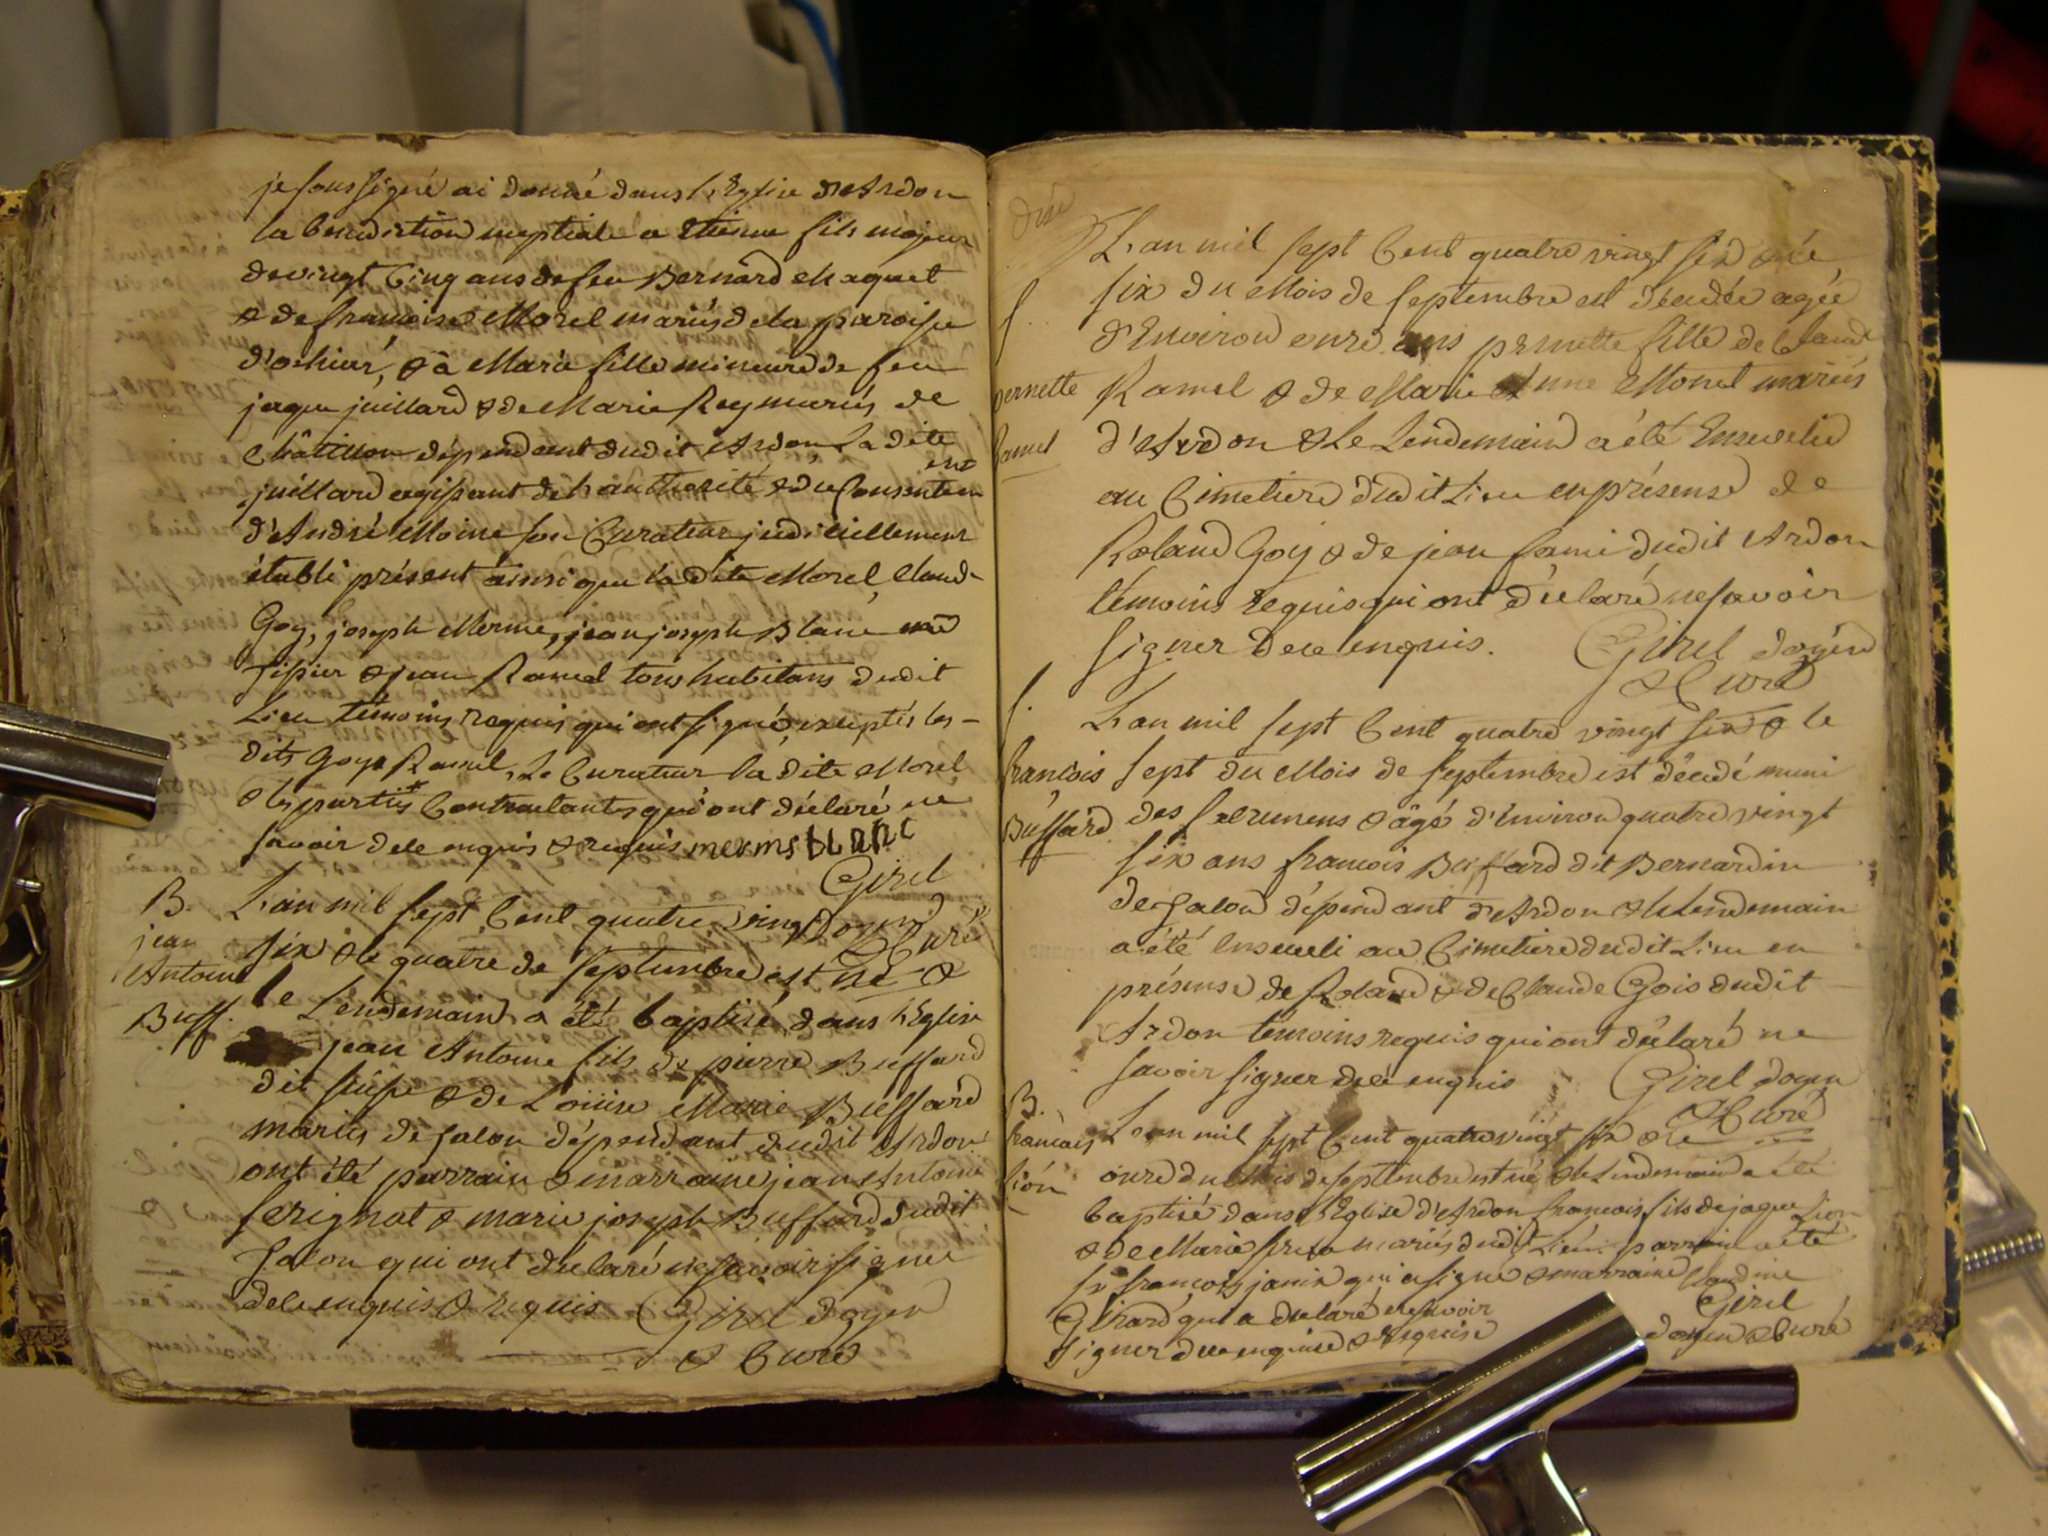 je soussigné ai donné dans l'Eglise d'Ardon
la benediction nuptiale a Etienne fils majeur
de vingt cinq ans de feu Bernard Maquet
& de francoise Morel mariés de la paroisse
d'ochiaz, & à Marie fille mineure de feu
jaque juillard & de Marie Rey mariés de
Châtillon dépendant dudit Ardon, La dite
juillard agissant de l'authorité & du Consentem
ent
d'André Moine son Curateur judiciellement
établi présent ainsi que la dite Morel, Claud-
Goy, joseph Merme, jean joseph Blanc
& jean Ramel tous habitans dudit
Lieu témoins requis qui ont signé, exceptés les-
dits Goy & Ramel, Le Curateur la dite Morel
& les parties Contractantes qui ont déclaré ne
savoir de ce enquis & requis merms bLanc
Girel
doyen
& Curé
B.
jean
Antoine
Buff.
L'an mil sept Cent quatre vingt
six & le quatre de septembre est né &
le Lendemain a été baptisé dans l'Eglise
jean Antoine fils de pierre Buffard
dit & de Louise Marie Buffard
mariés de jalon dépendant dudit Ardon
ont été parrain & marraine jean Antoine
serignat & marie joseph Buffard dudit
jalon qui ont déclaré ne savoir signer
de ce enquis & requis Girel doyen
& Curé
L'an mil sept Cent quatre vingt six & le
six du Mois de septembre est décédée agée
d'Environ onze ans pernette fille de Claud
Ramel & de Marie Anne Monet mariés
d'Ardon & Le Lendemain a été Ensevelie
au Cimetiere dudit Lieu en présense de
Roland Goy & de jean fami dudit Ardon
témoins requis qui ont déclaré ne savoir
signer de ce enquis. Girel doyen
& Curé
f.
pernette
Ramel
f.
francois
Buffard
L'an mil sept Cent quatre vingt six & le
sept du Mois de septembre est décédé muni
des sacremens & âgé d'Environ quatre vingt
six ans francois Buffard dit Bernardin
de jalon dépendant d'Ardon & le Lendemain
a été Enseveli au Cimetiere dudit Lieu en
présense de Roland & de Claude Gois dudit
Ardon temoins requis qui ont déclaré ne
savoir signer de ce enquis Girel doyen
& Curé
B.
francais
lion
L'an mil sept Cent quatre vingt six & le
onze du Mois de septembre est né & le Lendemain a été
baptisé dans l'Eglise d'Ardon francois fils de jaque Lion
& de Marie mariés dudit Lieu. parrain a été
sr francois janin qui a signé & marraine Claudine
Girard qui a déclaré ne savoir
signer de ce enquise & requise
Girel
doyen & Curé